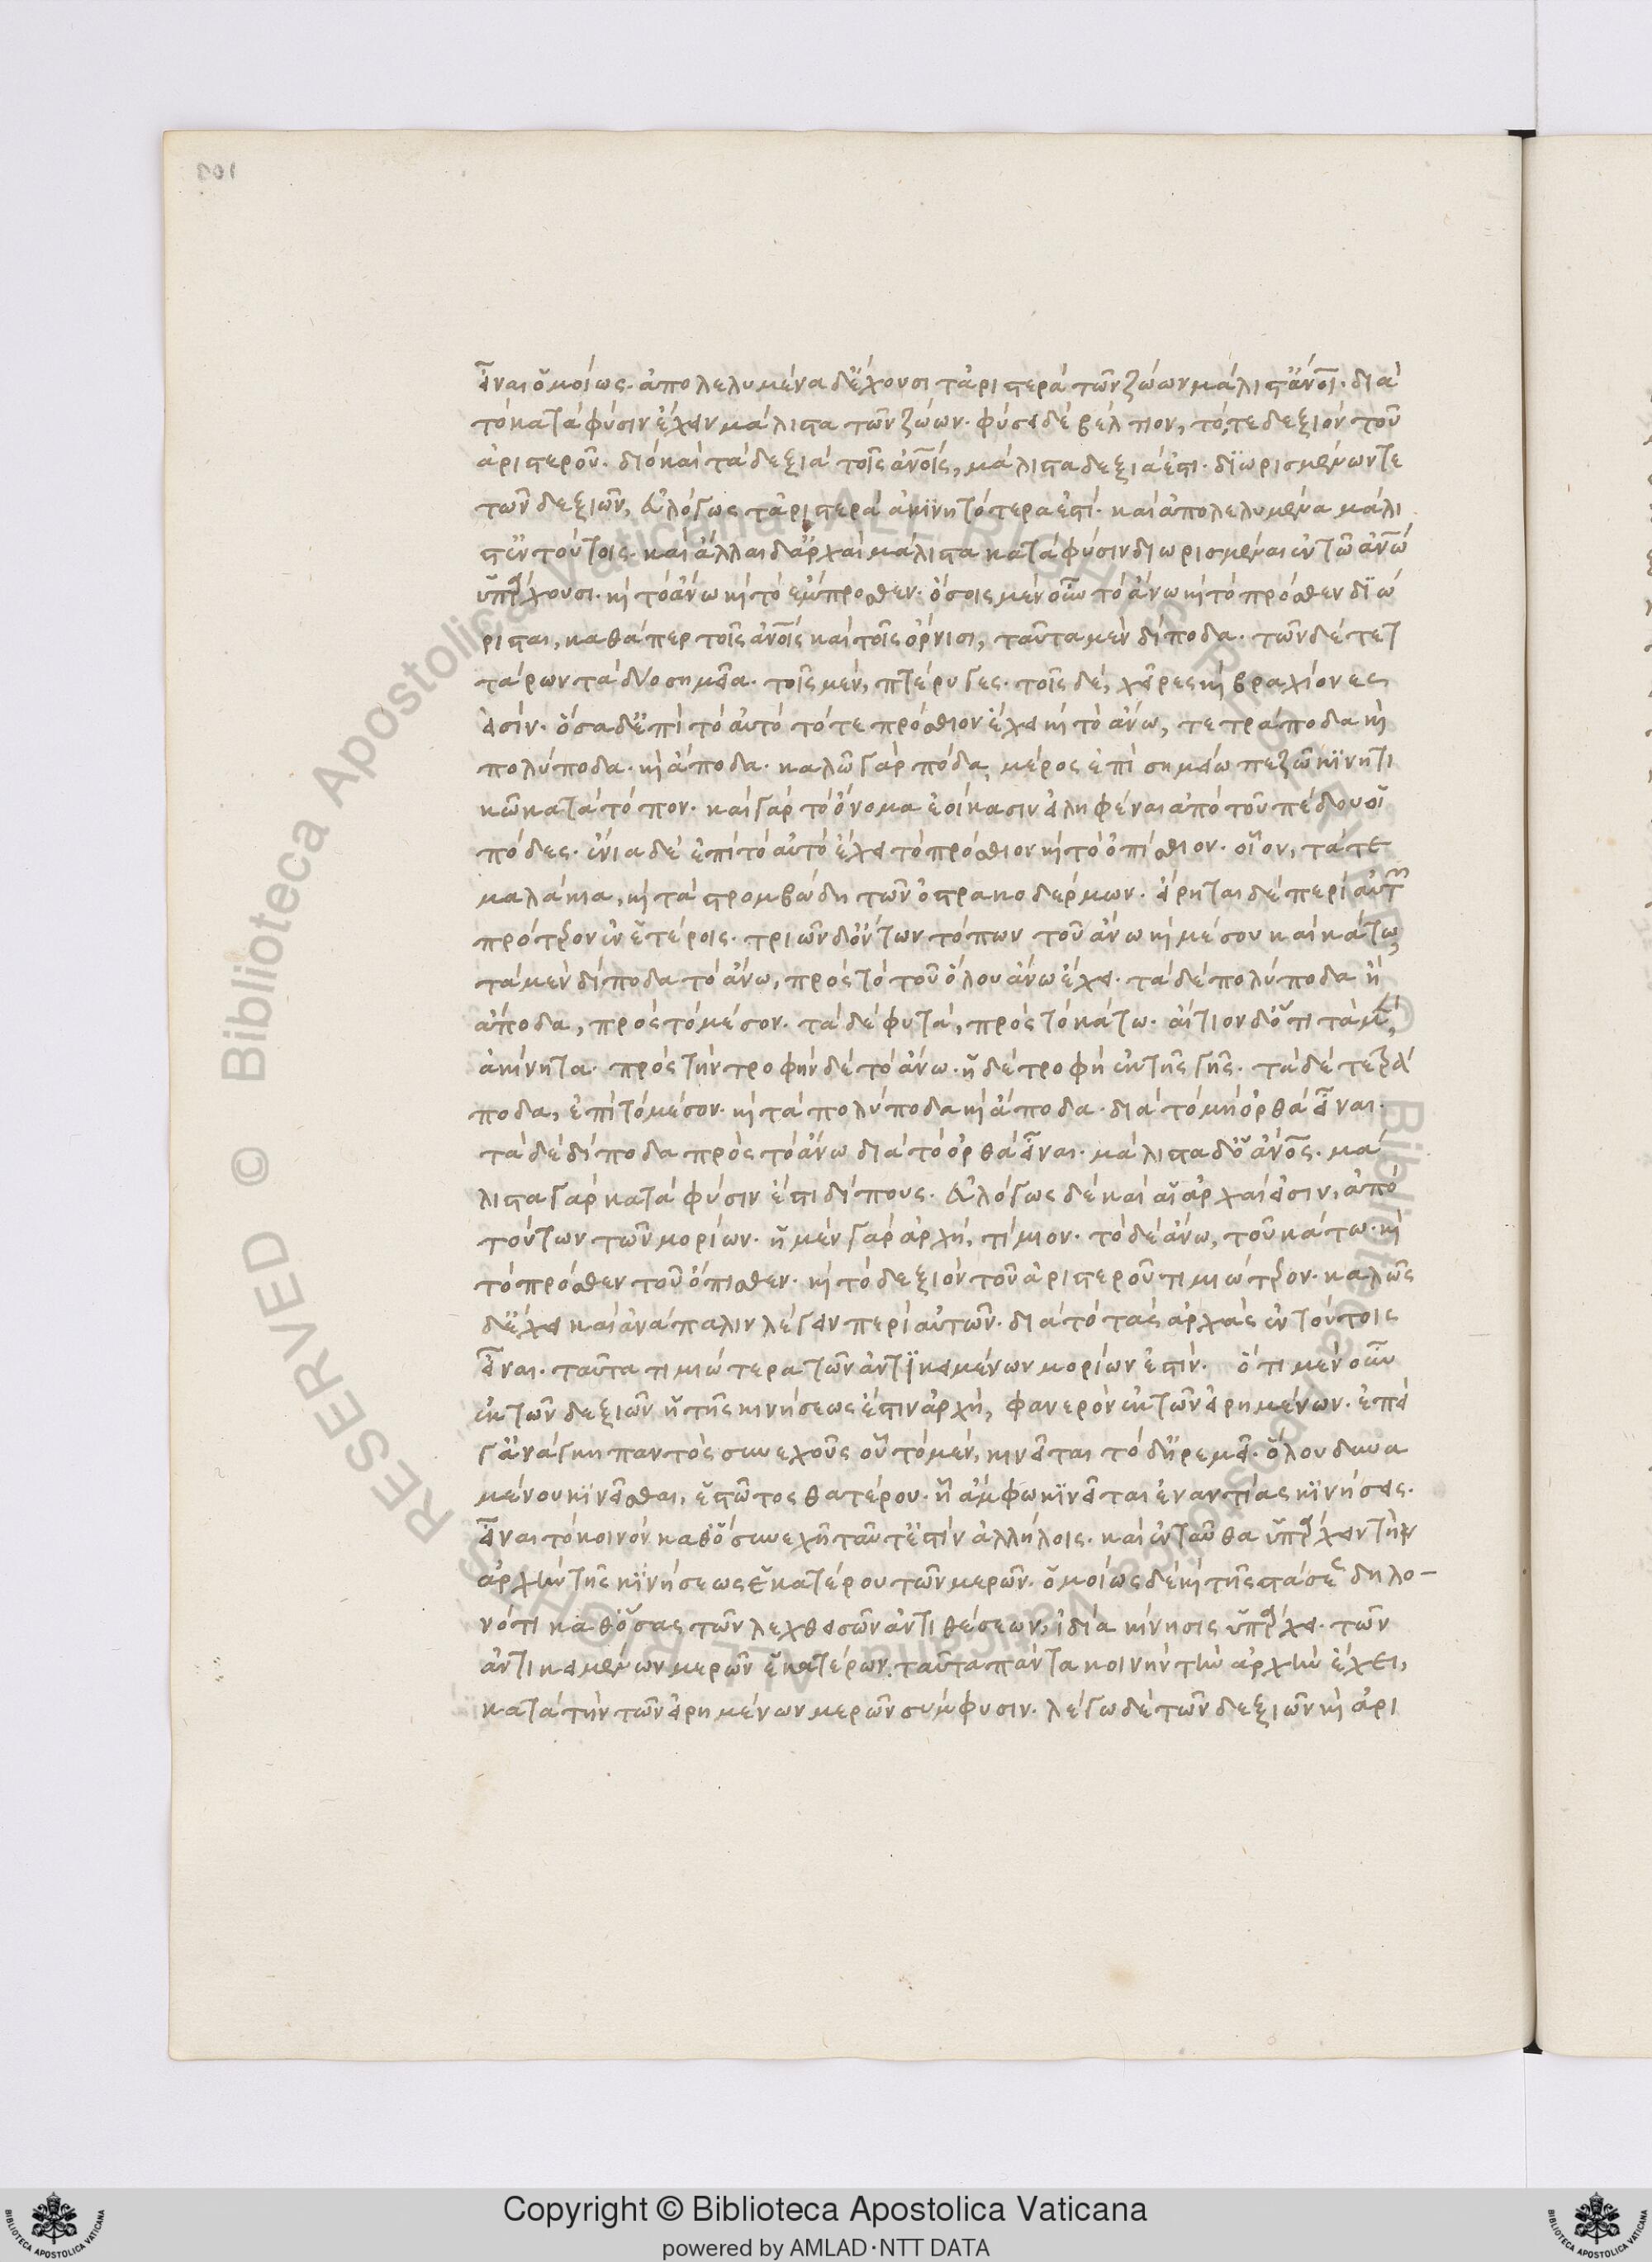 εἶναι ὁμοίως. ἀπολελυμένα δ' ἔχουσι τἀριστερὰ τῶν ζώων μάλιστ' ἄνοι. διὰ
τὸ κατὰ φύσιν ἔχειν μάλιστα τῶν ζώων. φύσει δὲ βέλτιον, τό, τε δεξιὸν τοῦ
ἀριστεροῦ. διὸ καὶ τὰ δεξιὰ τοῖς ἀνοις, μάλιστα δεξιά ἐστι. διωρισμένων τε
τῶν δεξιῶν, εὐλόγως τἀριστερὰ ἀκινητότερά ἐστι. καὶ ἀπολελυμένα μάλι
στ' ἐν τούτοις. καὶ ἄλλαι δ' ἀρχαὶ μάλιστα κατὰ φύσιν διωρισμέναι ἐν τῷ ἀνω
ὑπάρχουσι. κ τὸ ἄνω κ τὸ ἔμπροσθεν. ὅσοις μὲν οὖν τὸ ἄνω κ τὸ πρόσθεν διώ
ρισται, καθάπερ τοῖς ἀνοις καὶ τοῖς ὄρνισι, ταῦτα μὲν δίποδα. τῶν δὲ τετ
τάρων τὰ δύο σημεῖα. τοῖς μὲν, πτέρυγες. τοῖς δὲ, χεῖρες κ βραχίονες
εἰσίν. ὅσα δ' ἐπὶ τὸ αὐτὸ τό τε πρόσθιον ἔχει κ τὸ ἄνω, τετράποδα κ
πολύποδα. κ ἄποδα. καλῶ γὰρ πόδα μέρος ἐπὶ σημείω πεζῶ κινητι
κῶ κατὰ τόπον. καὶ γὰρ τὸ ὄνομα ἐοίκασιν εἰληφέναι ἀπὸ τοῦ πέδου οἱ
πόδες. ἔνια δὲ ἐπὶ τὸ αὐτὸ ἔχει τὸ πρόσθιον κ τὸ ὀπίσθιον. οἷον, τά τε
μαλάκια, κ τὰ στρομβώδη τῶν ὀστρακοδέρμων. εἴρηται δὲ περὶ αὐτῶν
πρότερον ἐν ἑτέροις. τριῶν δ' ὄντων τόπων τοῦ ἄνω κ μέσου καὶ κάτω,
τὰ μὲν δίποδα τὸ ἄνω, πρὸς τὸ τοῦ ὅλου ἄνω ἔχει. τὰ δὲ πολύποδα ἢ
ἄποδα, πρὸς τὸ μέσον. τὰ δὲ φυτὰ, πρὸς τὸ κάτω. αἴτιον δ' ὅτι τὰ μὲν,
ἀκίνητα. πρὸς τὴν τροφὴν δὲ τὸ ἄνω. ἡ δὲ τροφὴ ἐκ τῆς γῆς. τὰ δὲ τετρά
ποδα, ἐπὶ τὸ μέσον. κ τὰ πολύποδα κ ἄποδα. διὰ τὸ μὴ ὀρθὰ εἶναι.
τὰ δὲ δίποδα πρὸς τὸ ἄνω διὰ τὸ ὀρθὰ εἶναι. μάλιστα δ' ὁ ἄνος. μά
λιστα γὰρ κατὰ φύσιν ἐστὶ δίπους. εὐλόγως δὲ καὶ αἱ ἀρχαί εἰσιν, ἀπὸ
τούτων τῶν μορίων. ἡ μὲν γὰρ ἀρχὴ, τίμιον. τὸ δὲ ἄνω, τοῦ κάτω. κ
τὸ πρόσθεν τοῦ ὄπισθεν. κ τὸ δεξιὸν τοῦ ἀριστεροῦ τιμιώτερον. καλῶς
δ' ἔχει καὶ ἀνάπαλιν λέγειν περὶ αὐτῶν. διὰ τὸ τὰς ἀρχὰς ἐν τούτοις
εἶναι. ταῦτα τιμιώτερα τῶν ἀντικειμένων μορίων ἐστίν. ὅτι μὲν οὖν
ἐκ τῶν δεξιῶν ἡ τῆς κινήσεως ἐστιν ἀρχὴ, φανερὸν ἐκ τῶν εἰρημένων. ἐπεὶ
γ' ἀνάγκη παντὸς συνεχοῦς οὗ τὸ μὲν, κινεῖται τὸ δ' ἠρεμεῖ. ὅλου δυνα
μένου κινεῖσθαι, ἑστῶτος θατέρου. ᾗ ἄμφω κινεῖται ἐναντίας κινήσεις.
εἶναι τὸ κοινὸν καθ' ὃ συνεχῆ ταῦτ' ἐστὶν ἀλλήλοις. καὶ ἐνταῦθα ὑπάρχειν τὴν
ἀρχὴν τῆς κινήσεως ἑκατέρου τῶν μερῶν. ὁμοίως δὲ κ τῆς στάσεως δηλο-
νότι καθ' ὅσας τῶν λεχθεισῶν ἀντιθέσεων, ἰδία κίνησις ὑπάρχει. τῶν
ἀντικειμένων μερῶν ἑκατέρων. ταῦτα πάντα κοινὴν τὴν ἀρχὴν ἔχει,
κατὰ τὴν τῶν εἰρημένων μερῶν σύμφυσιν. λέγω δὲ τῶν δεξιῶν κ ἀρι
© Biblioteca Apostolica Vaticana ALL RIGHTS RESERVED
Copyright © Biblioteca Apostolica Vaticana
powered by AMLAD·NTT DATA